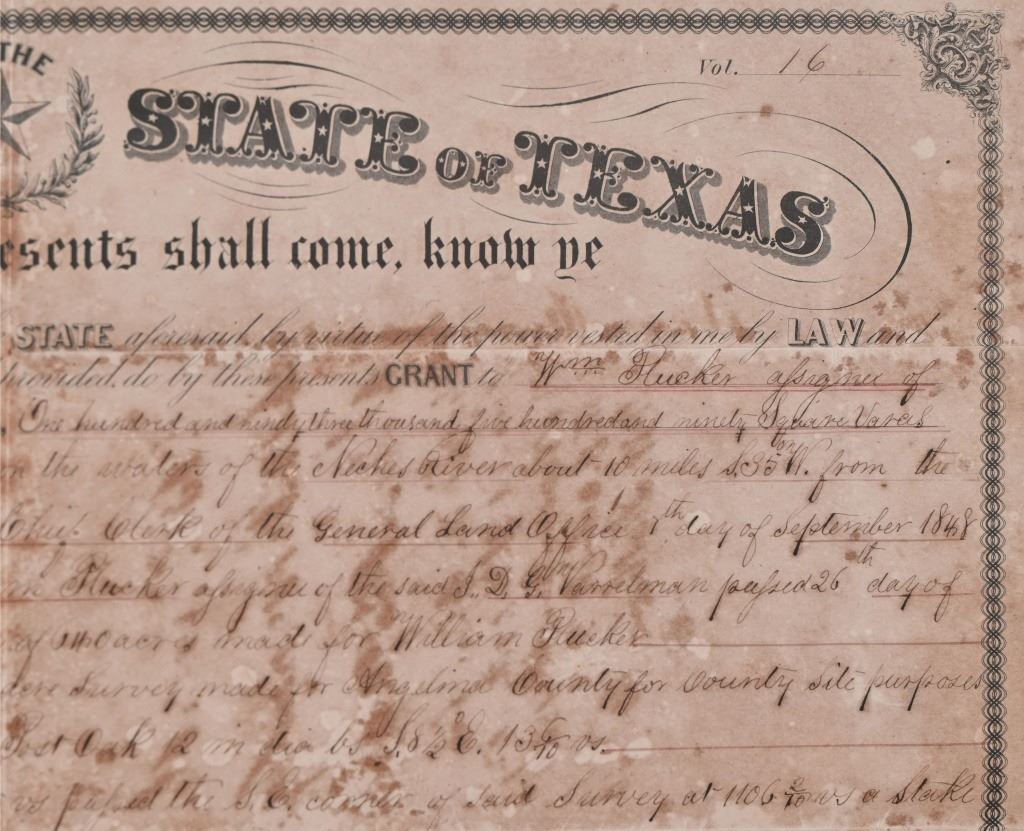 THE
Vol. 16
STATE OF TEXAS
esents shall come, know ye
STATE aforesaid, by virtue of the power vested in me by LAW and
provided, do by these presents GRANT to Wm. Flucker assignee of
One hundred and ninety three thousand five hundred and ninety Square Varas
on the waters of the Neches River about 10 miles S. 35 W. from the
Chief Clerk of the General Land Office 7th day of September 1848
Flucker assignee of the said J. D. G. Varrelman passed 26th day of
640 acres made for William Flucker
acre survey made for Angelina County for County site purposes
Post Oak 12 in dia brs S. 8½° E. 13 vs.
vs passed the S. E. corner of said Survey at 1106 vs a stake